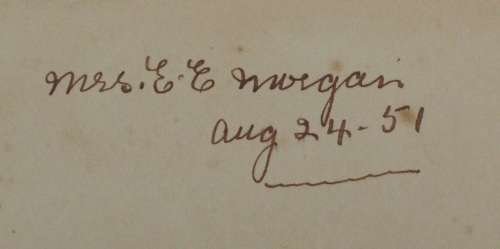 Mrs. E. E Morgan
Aug 24-51